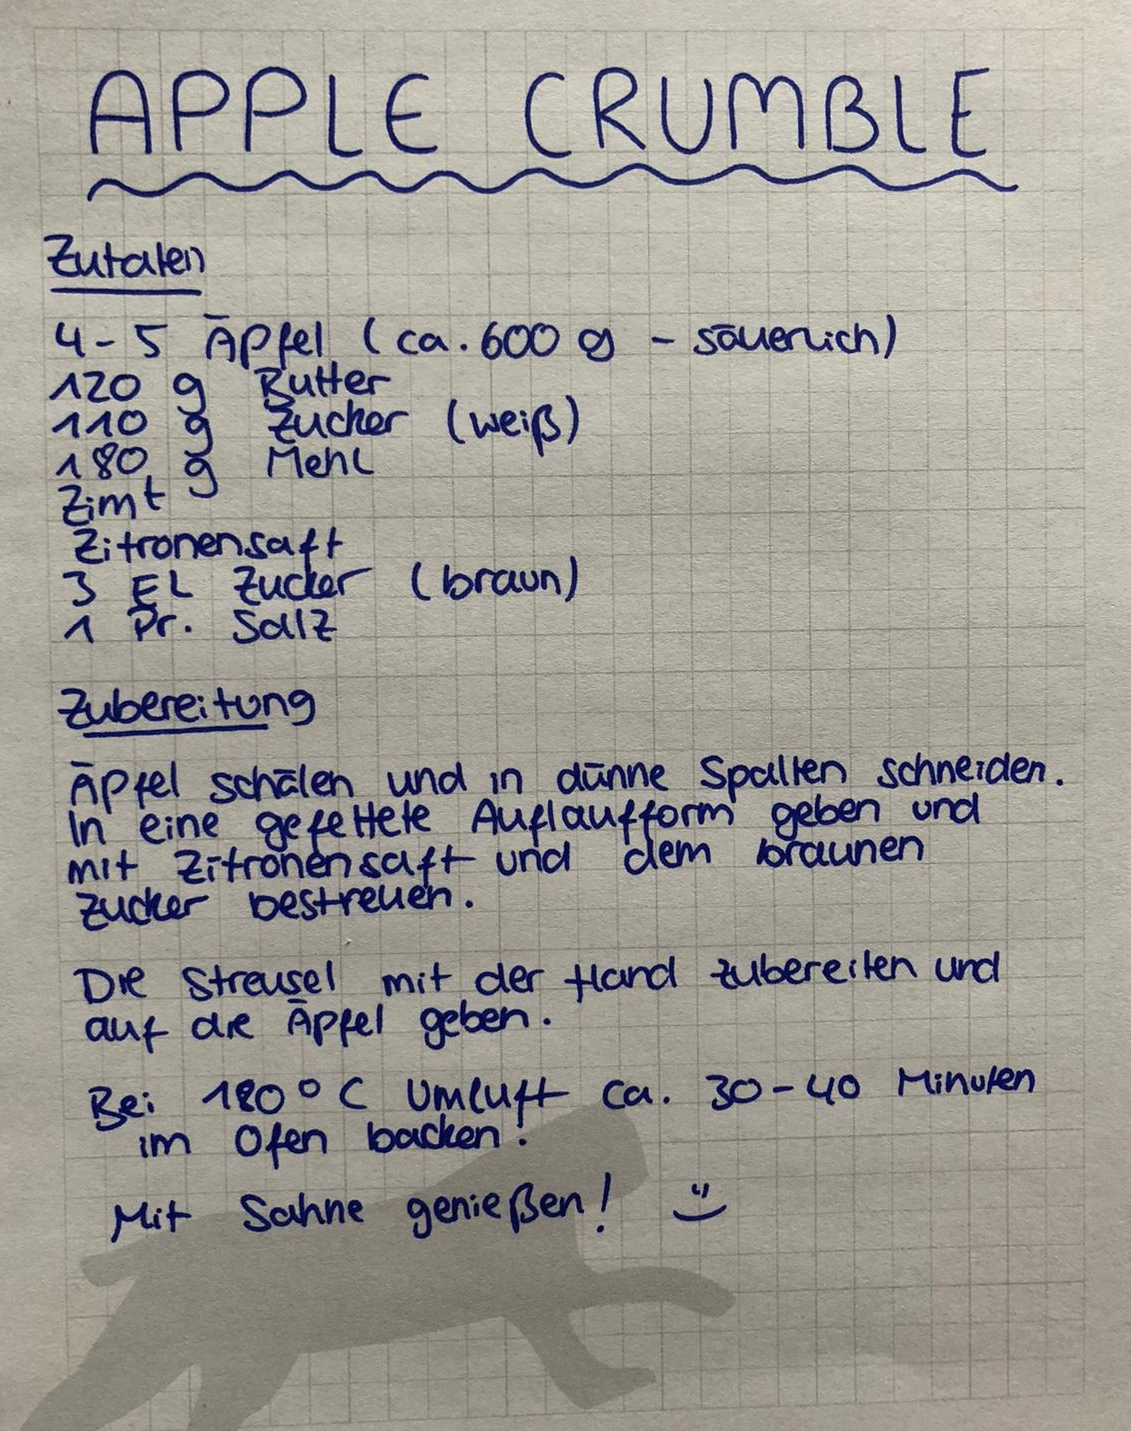 APPLE CRUMBLE
Zutaten
4-5 Äpfel (ca. 600 g - säuerlich)
120 g Butter
110 g Zucker (weiß)
180 g Mehl
Zimt
Zitronensaft
3 EL Zucker (braun)
1 Pr. Salz
Zubereitung
Äpfel schälen und in dünne Spalten schneiden.
In eine gefettete Auflaufform geben und
mit Zitronensaft und dem braunen
Zucker bestreuen.
Die Streusel mit der Hand zubereiten und
auf die Äpfel geben.
Bei 180°C Umluft ca. 30-40 Minuten
im Ofen backen!
Mit Sahne genießen! :)